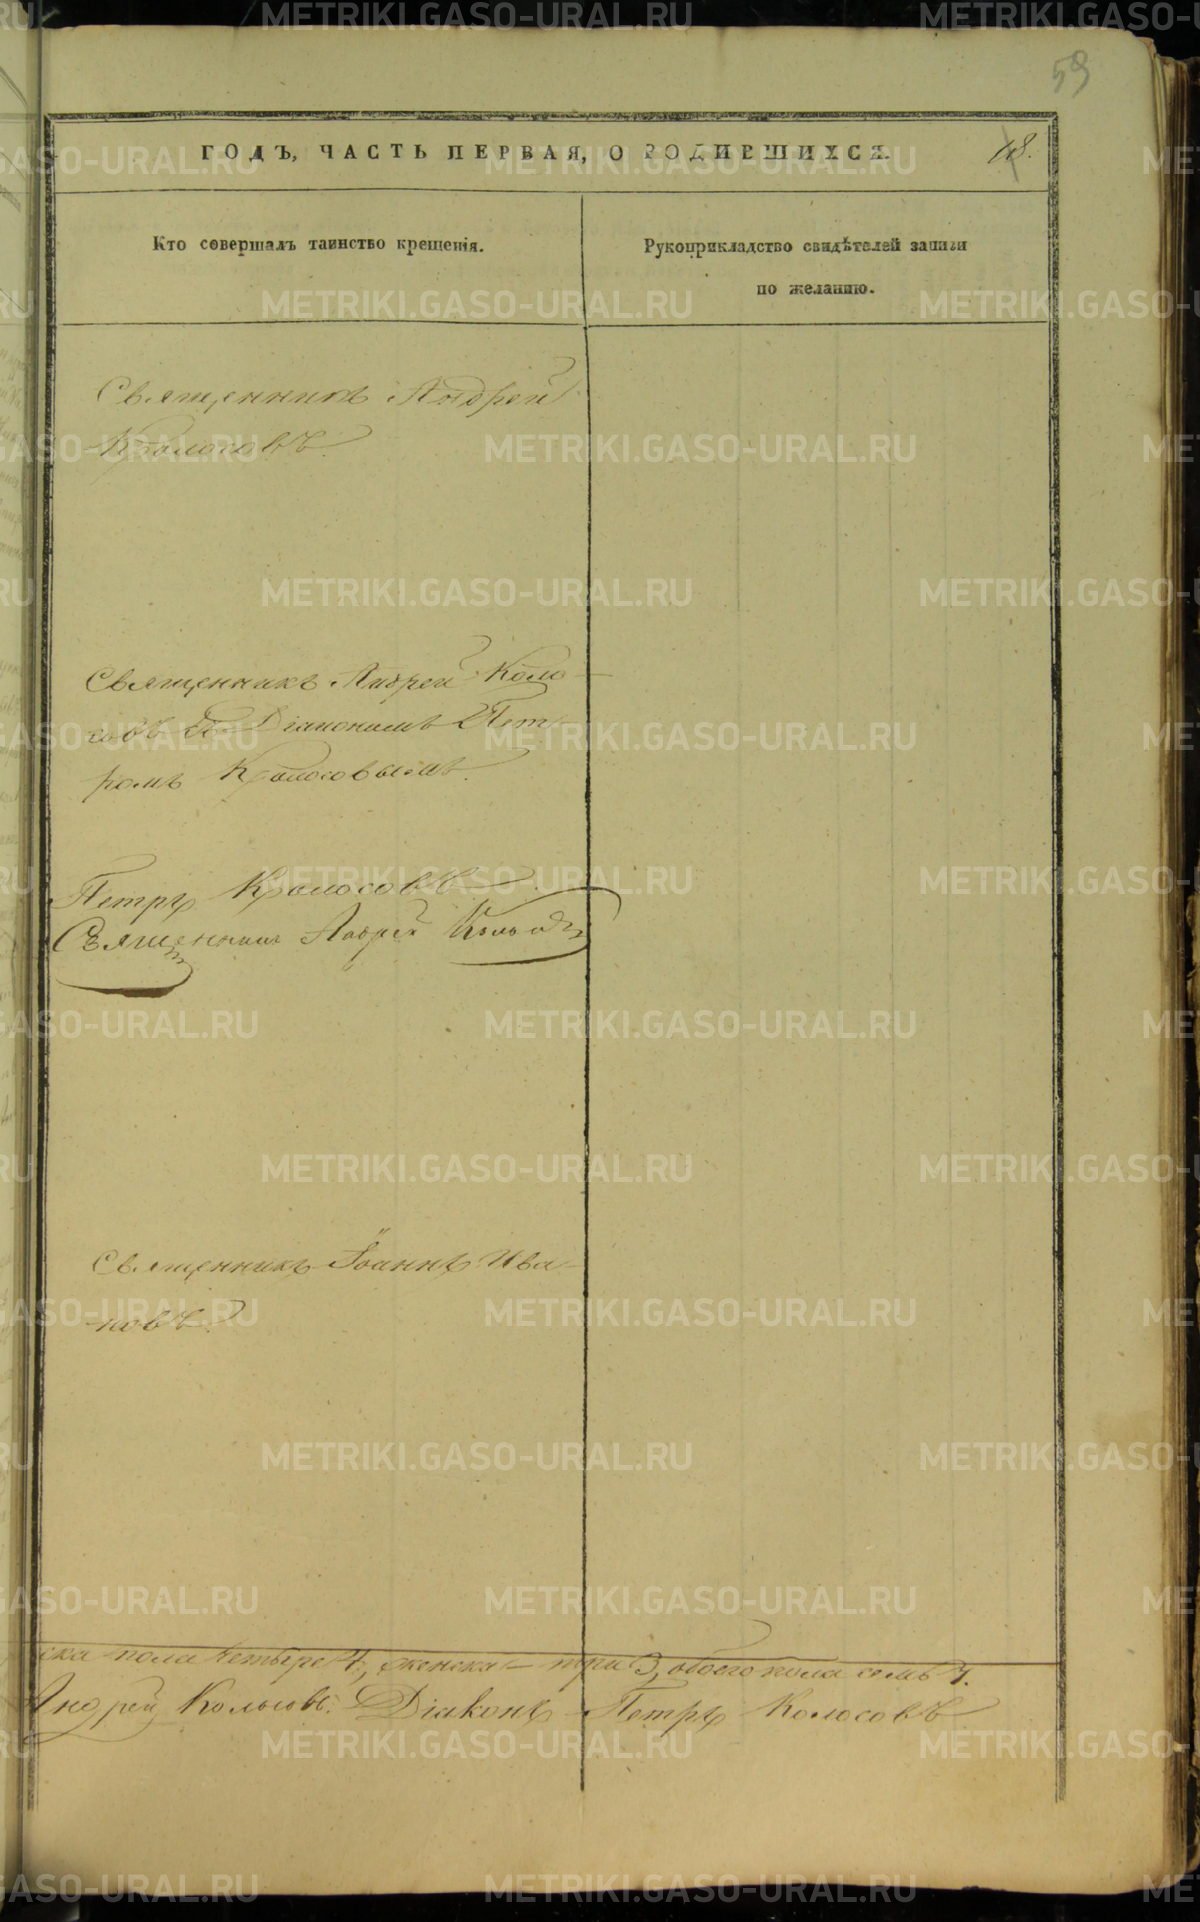 59
ГОДЪ, ЧАСТЬ ПЕРВАЯ, О РОДИВШИХСЯ.
18.
Кто совершалъ таинство крещенія.
Рукоприкладство свидѣтелей записи
по желанію.
Священникъ Андрей
Колосовъ.
Священникъ Андрей Коло-
совъ съ Діакономъ Пет-
ромъ Колосовымъ.
Петръ Колосовъ
Священникъ Андрей Колосовъ
Священникъ Іоаннъ Ива-
новъ.
ска пола четыре 4, женска – три 3, обоего пола семь 7.
Андрей Колосовъ. Діаконъ Петръ Колосовъ
METRIKI.GASO-URAL.RU